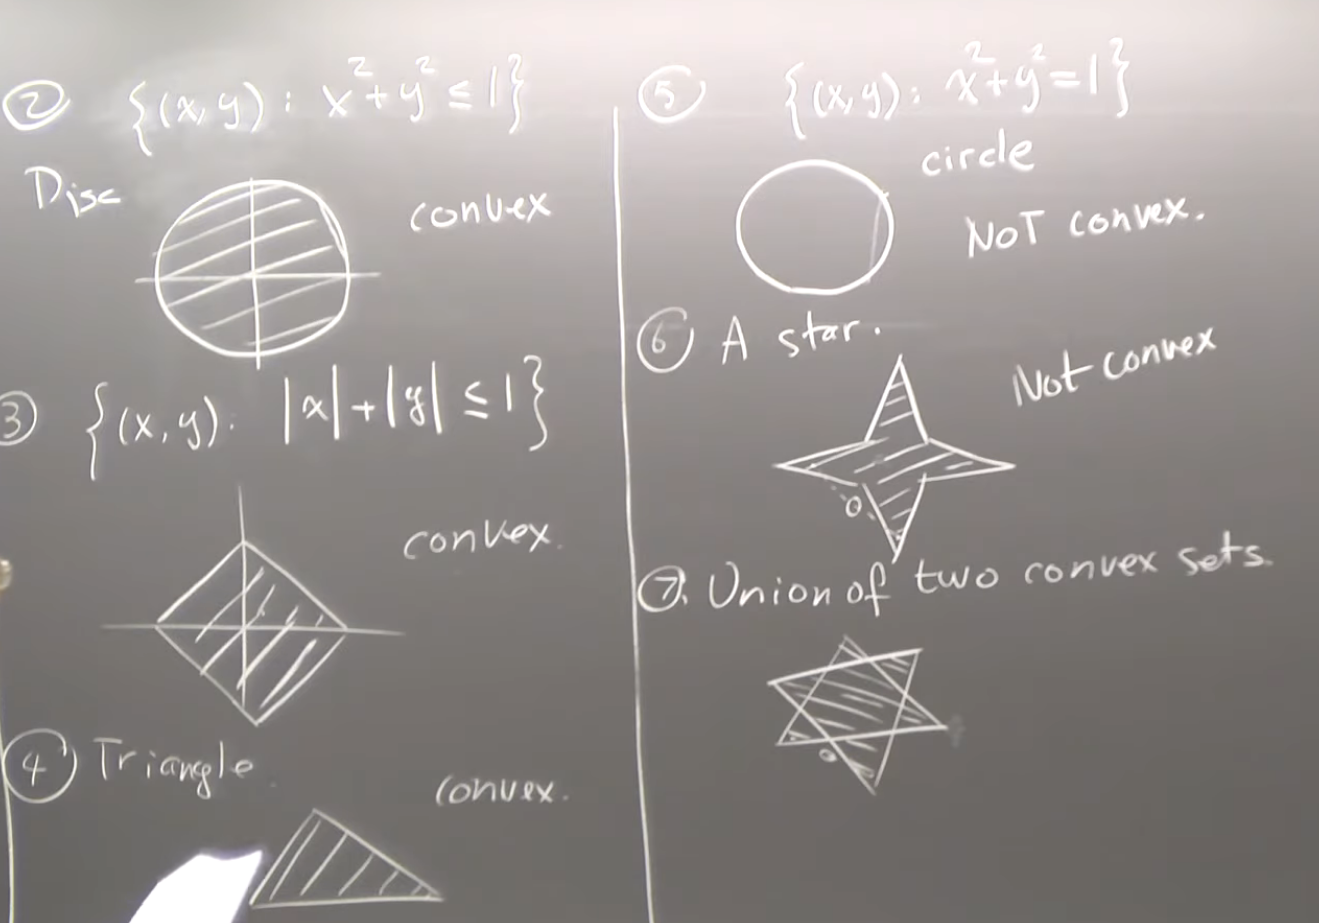 ② {(x, y) : x² + y² ≤ 1}
Disc
convex
③ {(x, y) : |x| + |y| ≤ 1}
convex.
④ Triangle.
convex.
⑤ {(x, y) : x² + y² = 1}
circle
NOT convex.
⑥ A star.
Not convex
⑦. Union of two convex sets.